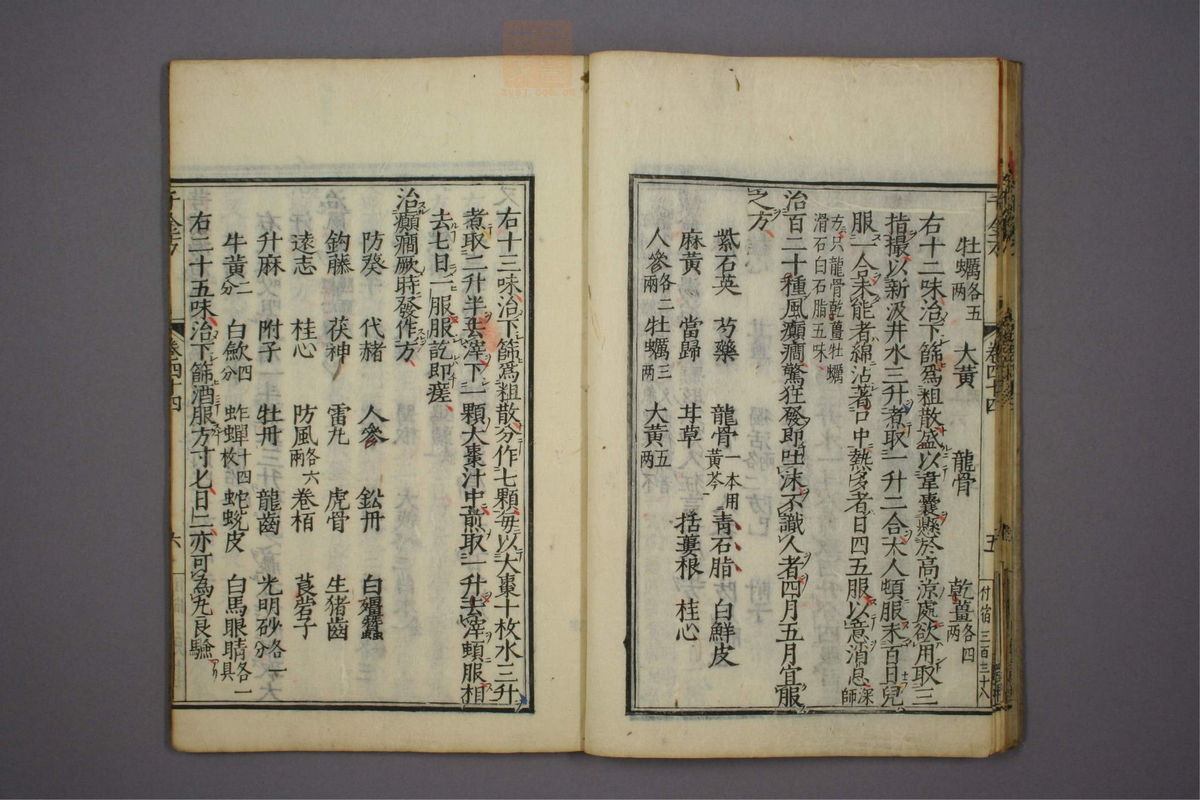 牡蠣各五兩　大黃　龍骨　乾薑各四兩
右十二味治下篩爲粗散盛以韋囊懸於高涼處欲用取三
指撮以新汲井水三升煮取一升二合大人頓服未百日兒
服一合未能者綿沾著口中熱多者日四五服以意消息深師
方只龍骨乾薑牡蠣滑石白石脂五味
治百二十種風癲癇驚狂發即吐沫不識人者四月五月宜服
之方
紫石英　芍藥　龍骨一本用黃芩　青石脂　白鮮皮
麻黃　當歸　甘草　括蔞根　桂心
人參各二兩　牡蠣三兩　大黃五兩
千金方　卷四十四　五
右十三味治下篩爲粗散分作七顆每以大棗十枚水三升
煮取二升半去滓下一顆大棗汁中煎取一升去滓頓服相
去七日一服服訖即瘥
治癲癇厥時發作方
防葵　代赭　人參　鈆丹　白殭蠶
鈎藤　茯神　雷丸　虎骨　生猪齒
遠志　桂心　防風各六兩　卷栢　莨菪子
升麻　附子　牡丹　龍齒　光明砂各一分
牛黃二分　白歛四分　蚱蟬十四枚　蛇蛻皮　白馬眼睛各一具
右二十五味治下篩酒服方寸匕日二亦可為丸良驗
千金方　卷四十四　六